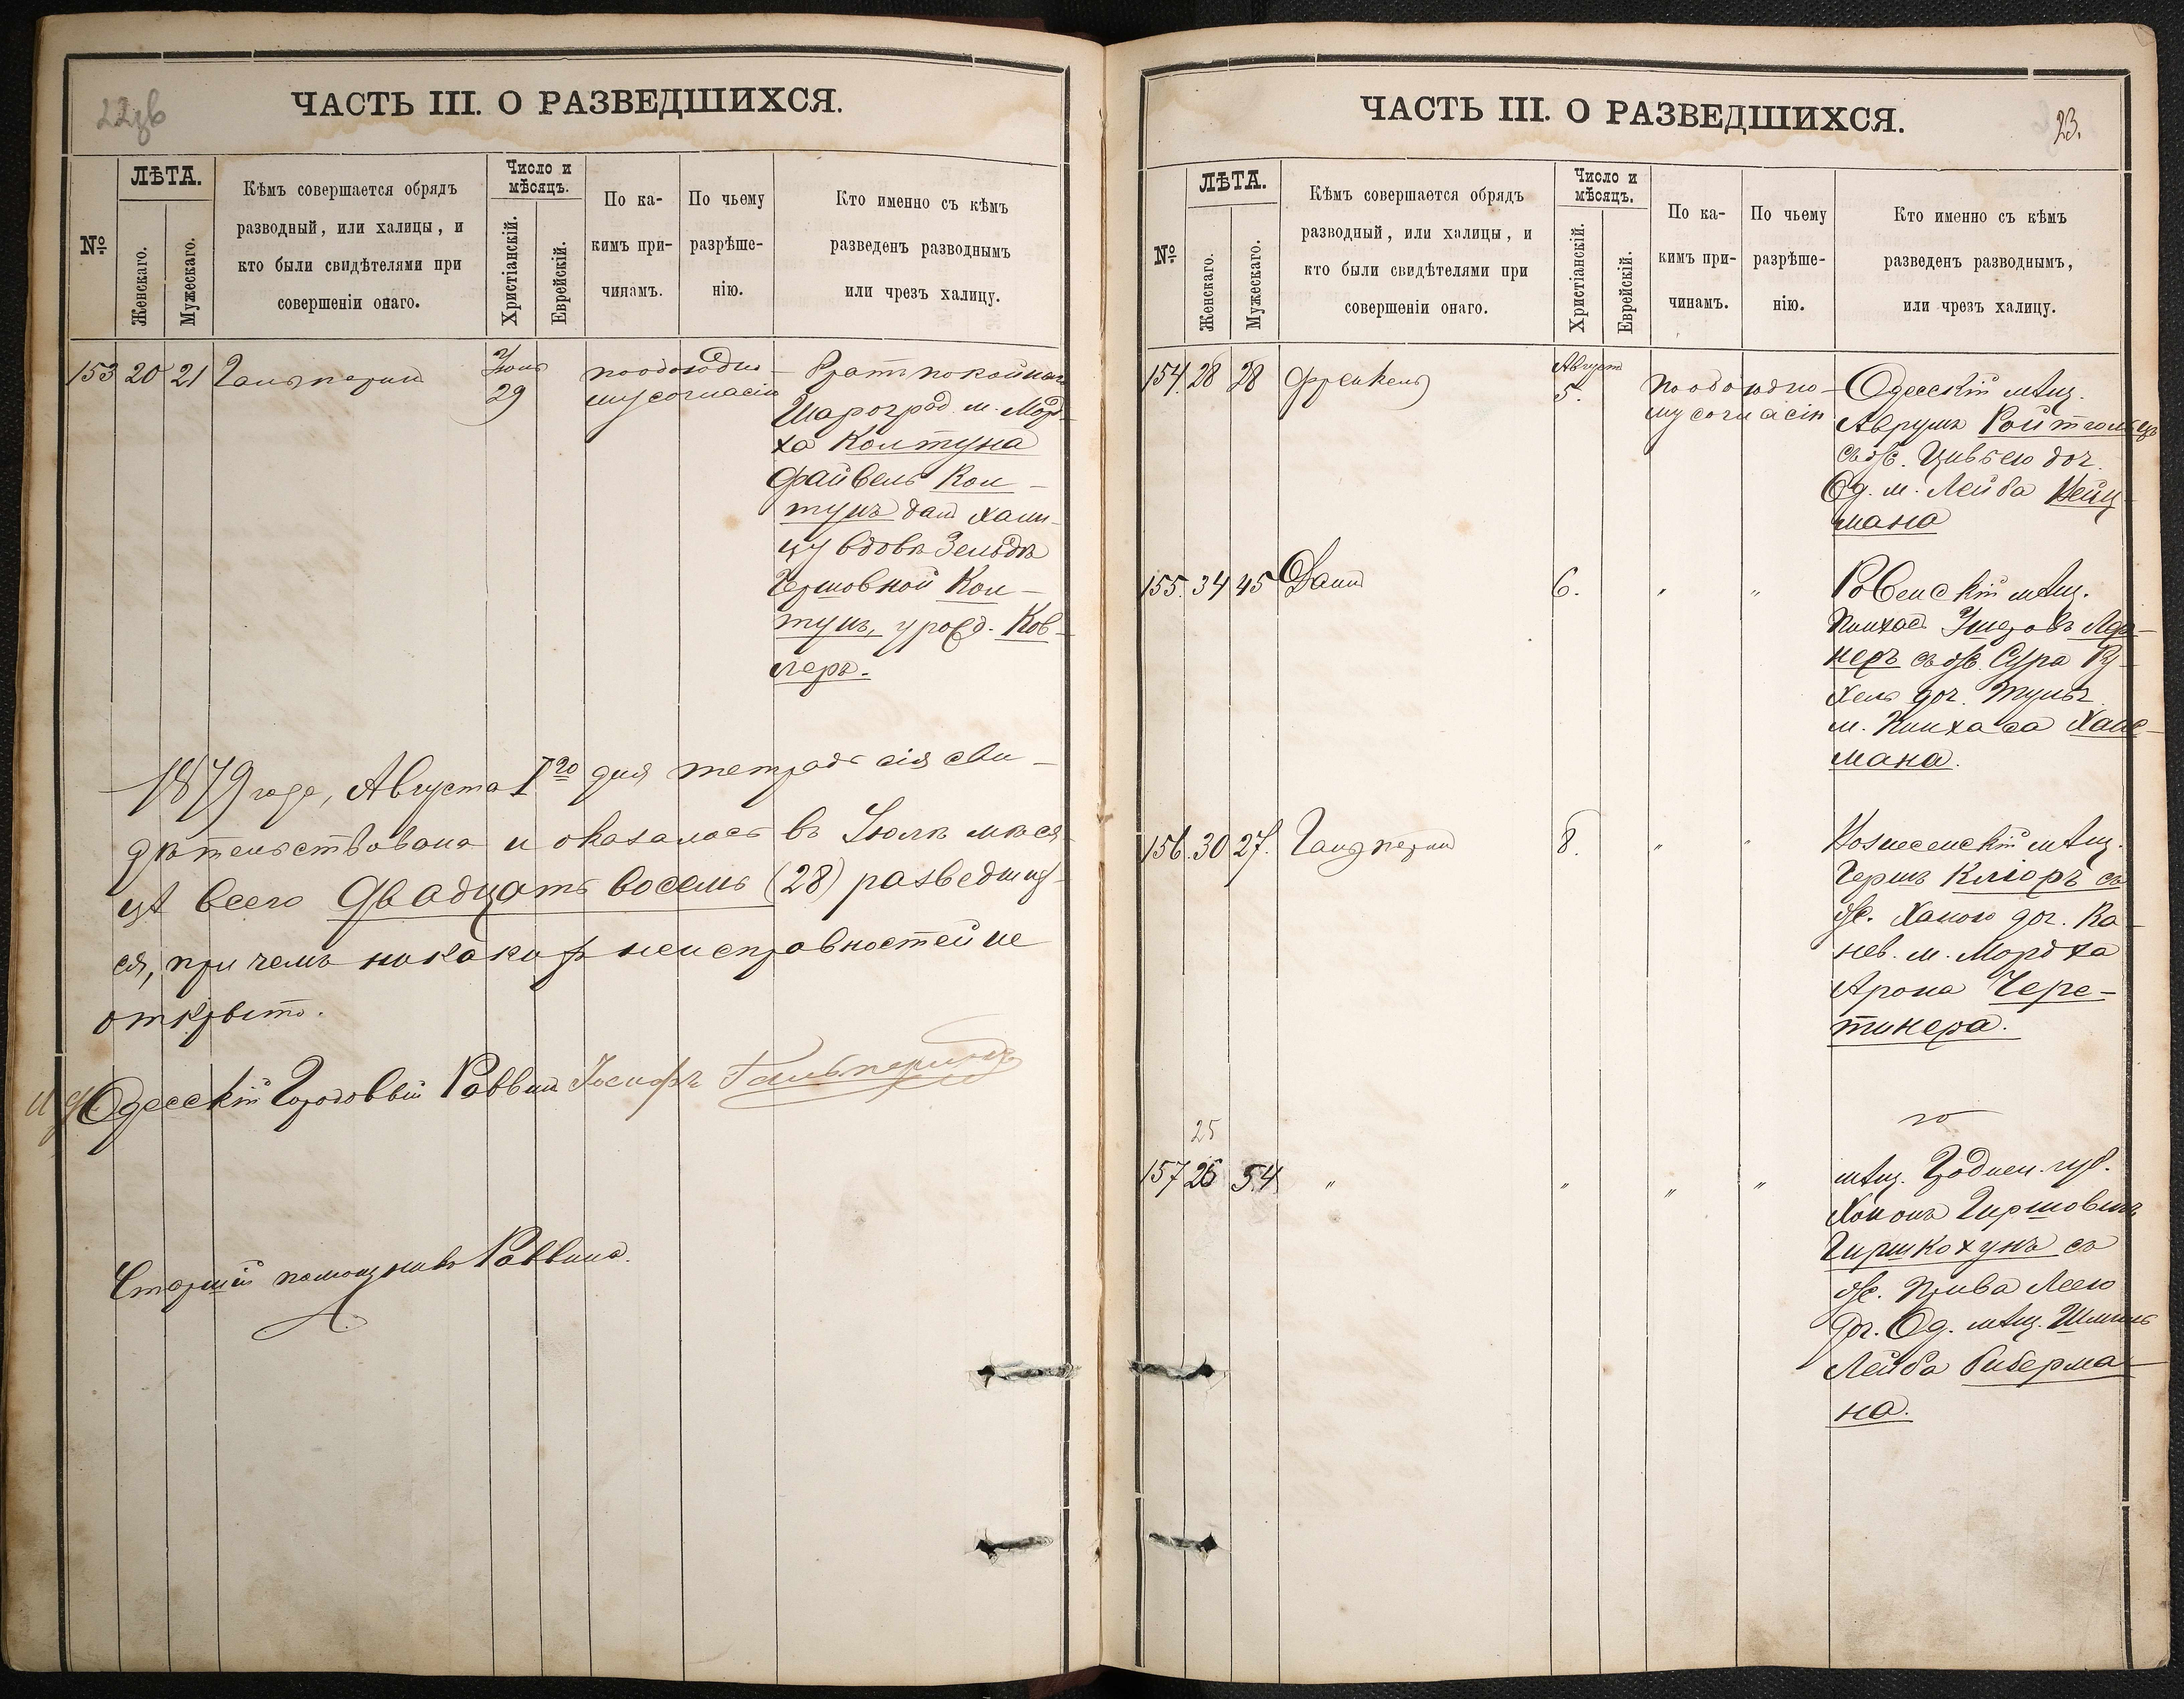 22об
ЧАСТЬ III. О РАЗВЕДШИХСЯ.
№
ЛѢТА.
Женскаго.
Мужескаго.
Кѣмъ совершается обрядъ
разводный, или халицы, и
кто были свидѣтелями при
совершеніи онаго.
Число и
мѣсяцъ.
Христіанскій.
Еврейскій.
По ка-
кимъ при-
чинамъ.
По чьему
разрѣше-
нію.
Кто именно съ кѣмъ
разведенъ разводнымъ
или чрезъ халицу.
153 20 21 Гальперинъ
29
по обоюдно-
му согласію
Братъ покойнаго
Шарогрод. м. Морд-
ха Колтуна
Файвель Кол-
тунъ далъ хали-
цу вдовѣ Зельдѣ
Гершовной Кол-
тунъ, урожд. Ков-
леръ.
1879 года, Августа 1го дня тетрадь сія сви-
дѣтельствована и оказалось въ Іюлѣ мѣся-
цѣ всего Двадцать восемь (28) разведших-
ся, при чемъ никакихъ неисправностей не
открыто.
И. д. Одесскій Городовой Раввинъ Іосифъ Гальперинъ
Старшій помощникъ Раввина
ЧАСТЬ III. О РАЗВЕДШИХСЯ.
23.
№
ЛѢТА.
Женскаго.
Мужескаго.
Кѣмъ совершается обрядъ
разводный, или халицы, и
кто были свидѣтелями при
совершеніи онаго.
Число и
мѣсяцъ.
Христіанскій.
Еврейскій.
По ка-
кимъ при-
чинамъ.
По чьему
разрѣше-
нію.
Кто именно съ кѣмъ
разведенъ разводнымъ,
или чрезъ халицу.
154. 28 28 Френкель
Августъ
5.
по обоюдно-
му согласію
Одесскій мѣщ.
Аврумъ
съ ж. Цивьею доч.
Од. м. Лейба Вейц-
мана
155. 34 45
6. " "
Ровенскій мѣщ.
Пинхасъ
неръ съ ж. Сура Ру-
хель доч. Тульч.
м. Пинхаса
мана.
156. 30 27. Гальперинъ
8. " "
Вознесенскій мѣщ.
Гершъ Кліоръ съ
ж. Ханою доч. Ка-
нев. м. Мордха
Арона Чере-
тинера.
25
157 26 54 " " " "
мѣщ. Гроднен. губ.
Хононъ Гиршовичъ
Гиршкохунъ съ
ж. Прива Леею
доч. Од. мѣщ.
Лейба Либерма-
на.